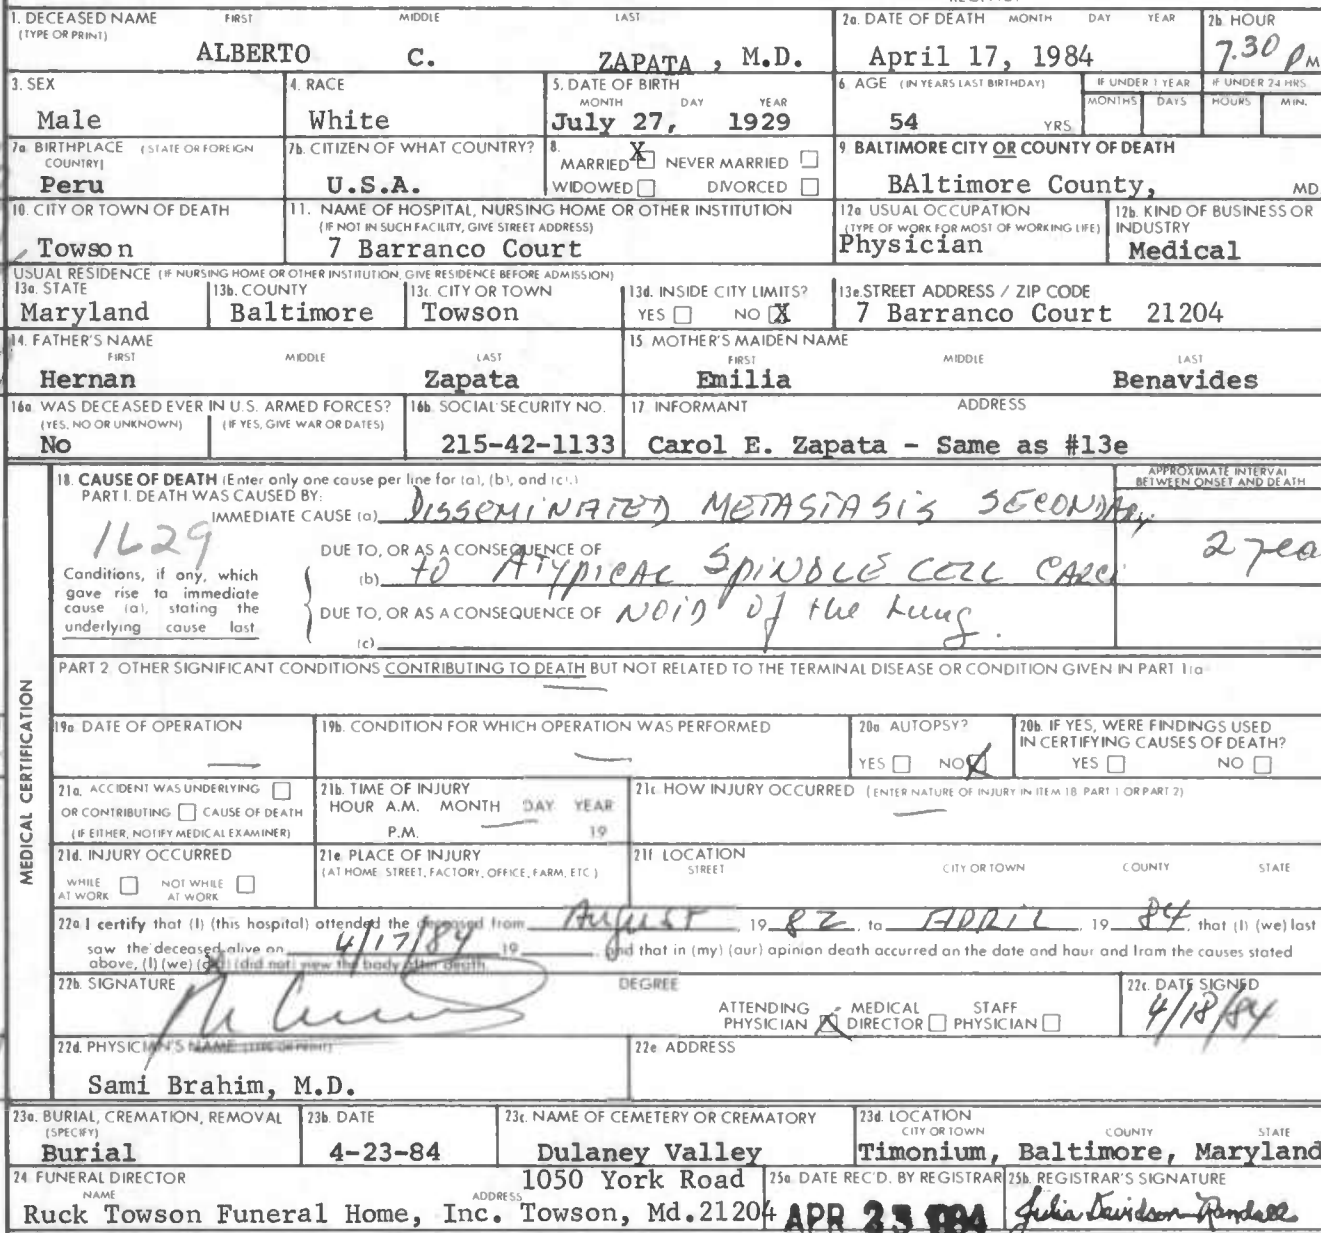 1. DECEASED NAME (TYPE OR PRINT) FIRST MIDDLE LAST
ALBERTO C. ZAPATA, M.D.
2a. DATE OF DEATH MONTH DAY YEAR
April 17, 1984
2b. HOUR
7:30 PM
3. SEX
Male
4. RACE
White
5. DATE OF BIRTH MONTH DAY YEAR
July 27, 1929
6. AGE (IN YEARS LAST BIRTHDAY)
54 YRS
IF UNDER 1 YEAR MONTHS DAYS
IF UNDER 24 HRS HOURS MIN.
7a. BIRTHPLACE (STATE OR FOREIGN COUNTRY)
Peru
7b. CITIZEN OF WHAT COUNTRY?
U.S.A.
8. MARRIED X NEVER MARRIED
WIDOWED DIVORCED
9. BALTIMORE CITY OR COUNTY OF DEATH
BAltimore County, MD
10. CITY OR TOWN OF DEATH
Towson
11. NAME OF HOSPITAL, NURSING HOME OR OTHER INSTITUTION
(IF NOT IN SUCH FACILITY, GIVE STREET ADDRESS)
7 Barranco Court
12a. USUAL OCCUPATION
(TYPE OF WORK FOR MOST OF WORKING LIFE)
Physician
12b. KIND OF BUSINESS OR INDUSTRY
Medical
USUAL RESIDENCE (IF NURSING HOME OR OTHER INSTITUTION, GIVE RESIDENCE BEFORE ADMISSION)
13a. STATE
Maryland
13b. COUNTY
Baltimore
13c. CITY OR TOWN
Towson
13d. INSIDE CITY LIMITS?
YES NO X
13e. STREET ADDRESS / ZIP CODE
7 Barranco Court 21204
14. FATHER'S NAME FIRST MIDDLE LAST
Hernan Zapata
15. MOTHER'S MAIDEN NAME FIRST MIDDLE LAST
Emilia Benavides
16a. WAS DECEASED EVER IN U.S. ARMED FORCES?
(YES, NO OR UNKNOWN) (IF YES, GIVE WAR OR DATES)
No
16b. SOCIAL SECURITY NO.
215-42-1133
17. INFORMANT ADDRESS
Carol E. Zapata - Same as #13e
MEDICAL CERTIFICATION
18. CAUSE OF DEATH (Enter only one cause per line for (a), (b), and (c).)
PART I. DEATH WAS CAUSED BY:
APPROXIMATE INTERVAL BETWEEN ONSET AND DEATH
IMMEDIATE CAUSE (a) DISSEMINATED METASTASIS SECONDARY
1629
DUE TO, OR AS A CONSEQUENCE OF
(b) to ATYPICAL SPINDLE CELL CARCI
2 yea
DUE TO, OR AS A CONSEQUENCE OF NOID of the Lung.
(c)
Conditions, if any, which
gave rise to immediate
cause (a), stating the
underlying cause last
PART 2. OTHER SIGNIFICANT CONDITIONS CONTRIBUTING TO DEATH BUT NOT RELATED TO THE TERMINAL DISEASE OR CONDITION GIVEN IN PART 1(a
19a. DATE OF OPERATION
19b. CONDITION FOR WHICH OPERATION WAS PERFORMED
20a. AUTOPSY?
YES NO X
20b. IF YES, WERE FINDINGS USED
IN CERTIFYING CAUSES OF DEATH?
YES NO
21a. ACCIDENT WAS UNDERLYING
OR CONTRIBUTING CAUSE OF DEATH
(IF EITHER, NOTIFY MEDICAL EXAMINER)
21b. TIME OF INJURY
HOUR A.M. MONTH DAY YEAR
P.M. 19
21c. HOW INJURY OCCURRED (ENTER NATURE OF INJURY IN ITEM 18 PART 1 OR PART 2)
21d. INJURY OCCURRED
WHILE AT WORK NOT WHILE AT WORK
21e. PLACE OF INJURY
(AT HOME, STREET, FACTORY, OFFICE, FARM, ETC.)
21f. LOCATION
STREET CITY OR TOWN COUNTY STATE
22a. I certify that (I) (this hospital) attended the deceased from August 19 82, to APRIL, 19 84, that (I) (we) last
saw the deceased alive on 4/17/84 19 , and that in (my) (our) opinion death occurred on the date and hour and from the causes stated
above, (I) (we) (did) (did not) view the body after death.
22b. SIGNATURE DEGREE
ATTENDING PHYSICIAN X MEDICAL DIRECTOR STAFF PHYSICIAN
22c. DATE SIGNED
4/18/84
22d. PHYSICIAN'S NAME (TYPE OR PRINT)
Sami Brahim, M.D.
22e. ADDRESS
23a. BURIAL, CREMATION, REMOVAL (SPECIFY)
Burial
23b. DATE
4-23-84
23c. NAME OF CEMETERY OR CREMATORY
Dulaney Valley
23d. LOCATION
CITY OR TOWN COUNTY STATE
Timonium, Baltimore, Maryland
24. FUNERAL DIRECTOR
NAME ADDRESS
1050 York Road
Ruck Towson Funeral Home, Inc. Towson, Md.21204
25a. DATE REC'D. BY REGISTRAR
APR 23 1984
25b. REGISTRAR'S SIGNATURE
Julia Davidson-Randall